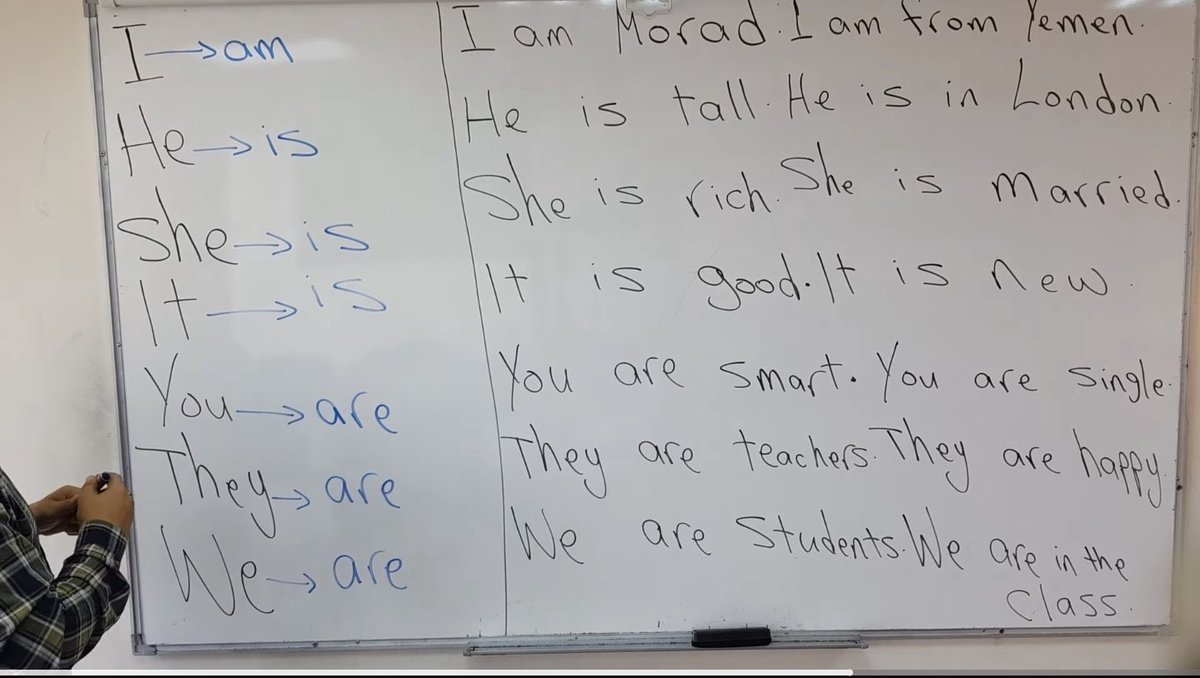 I → am
He → is
She → is
It → is
You → are
They → are
We → are
I am Morad. I am from Yemen.
He is tall. He is in London.
She is rich. She is married.
It is good. It is new.
You are smart. You are single.
They are teachers. They are happy.
We are students. We are in the
class.